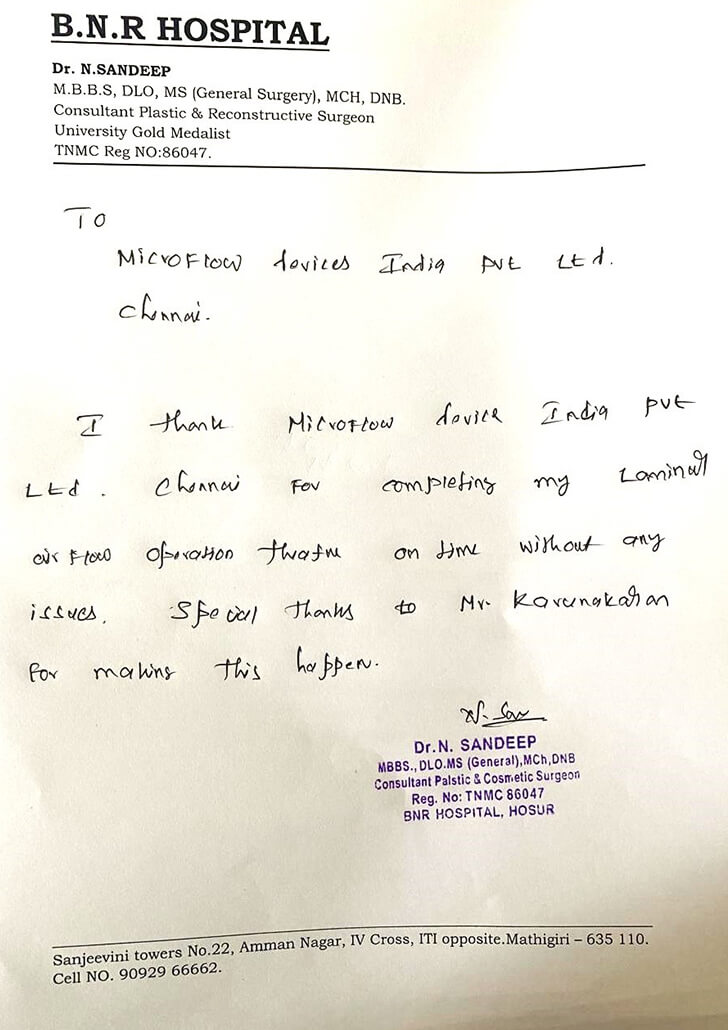 B.N.R HOSPITAL
Dr. N.SANDEEP
M.B.B.S, DLO, MS (General Surgery), MCH, DNB.
Consultant Plastic & Reconstructive Surgeon
University Gold Medalist
TNMC Reg NO:86047.
To
Microflow devices India Pvt Ltd.
Chennai.
I thank Microflow device India Pvt
Ltd. Chennai for completing my Laminar
air flow operation theatre on time without any
issues. Special thanks to Mr. Karunakaran
for making this happen.
N. San
Dr.N. SANDEEP
MBBS.,DLO.MS (General),MCh,DNB
Consultant Palstic & Cosmetic Surgeon
Reg. No: TNMC 86047
BNR HOSPITAL, HOSUR
Sanjeevini towers No.22, Amman Nagar, IV Cross, ITI opposite.Mathigiri – 635 110.
Cell NO. 90929 66662.